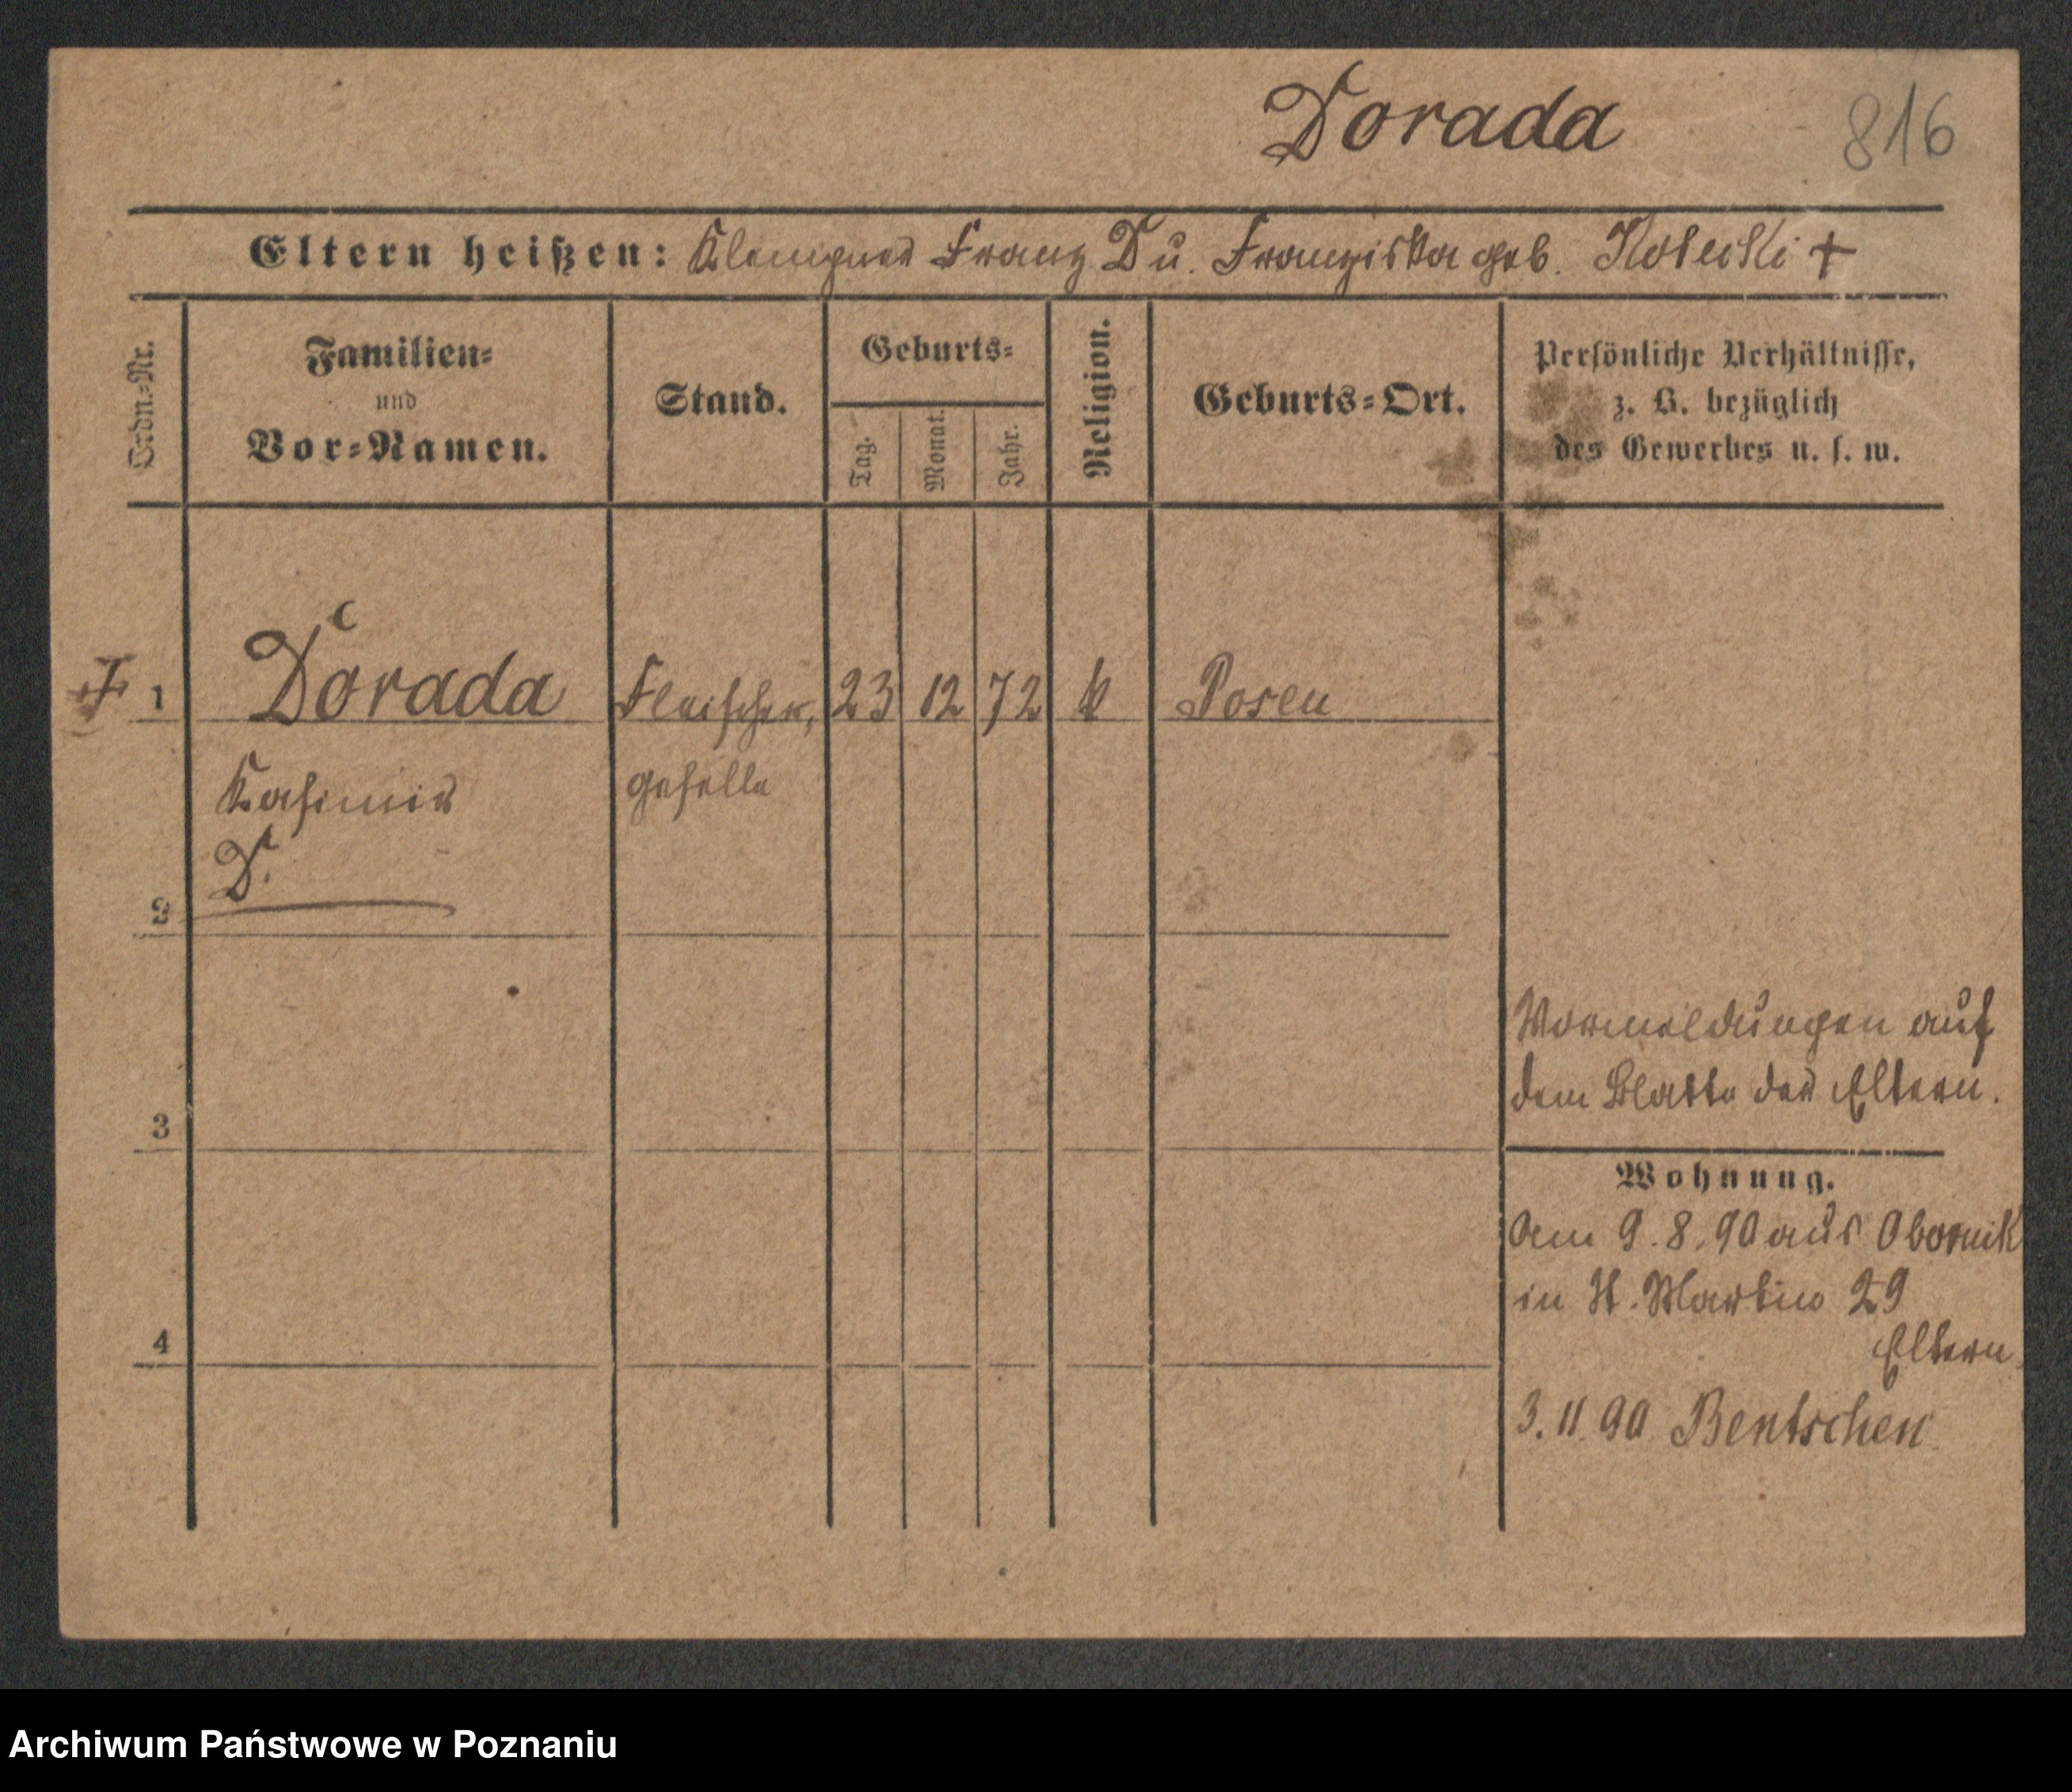 Dorada
816
Eltern heißen: Klempner Franz D u. Franziska geb. +
Ordn.-Nr.
Familien-
und
Vor-Namen.
Stand.
Geburts-
Tag.
Monat.
Jahr.
Religion.
Geburts-Ort.
Persönliche Verhältnisse,
z. B. bezüglich
des Gewerbes u. s. w.
1 Dorada Fleischer, 23 12 72 k Posen
Kasimir geselle
D.
2
Vormeldungen auf
dem Blatte der Eltern.
3
Wohnung.
Am 9.8.90 aus Obornik
in St. Martin 29
Eltern.
4
3.11.90 Bentschen
Archiwum Państwowe w Poznaniu